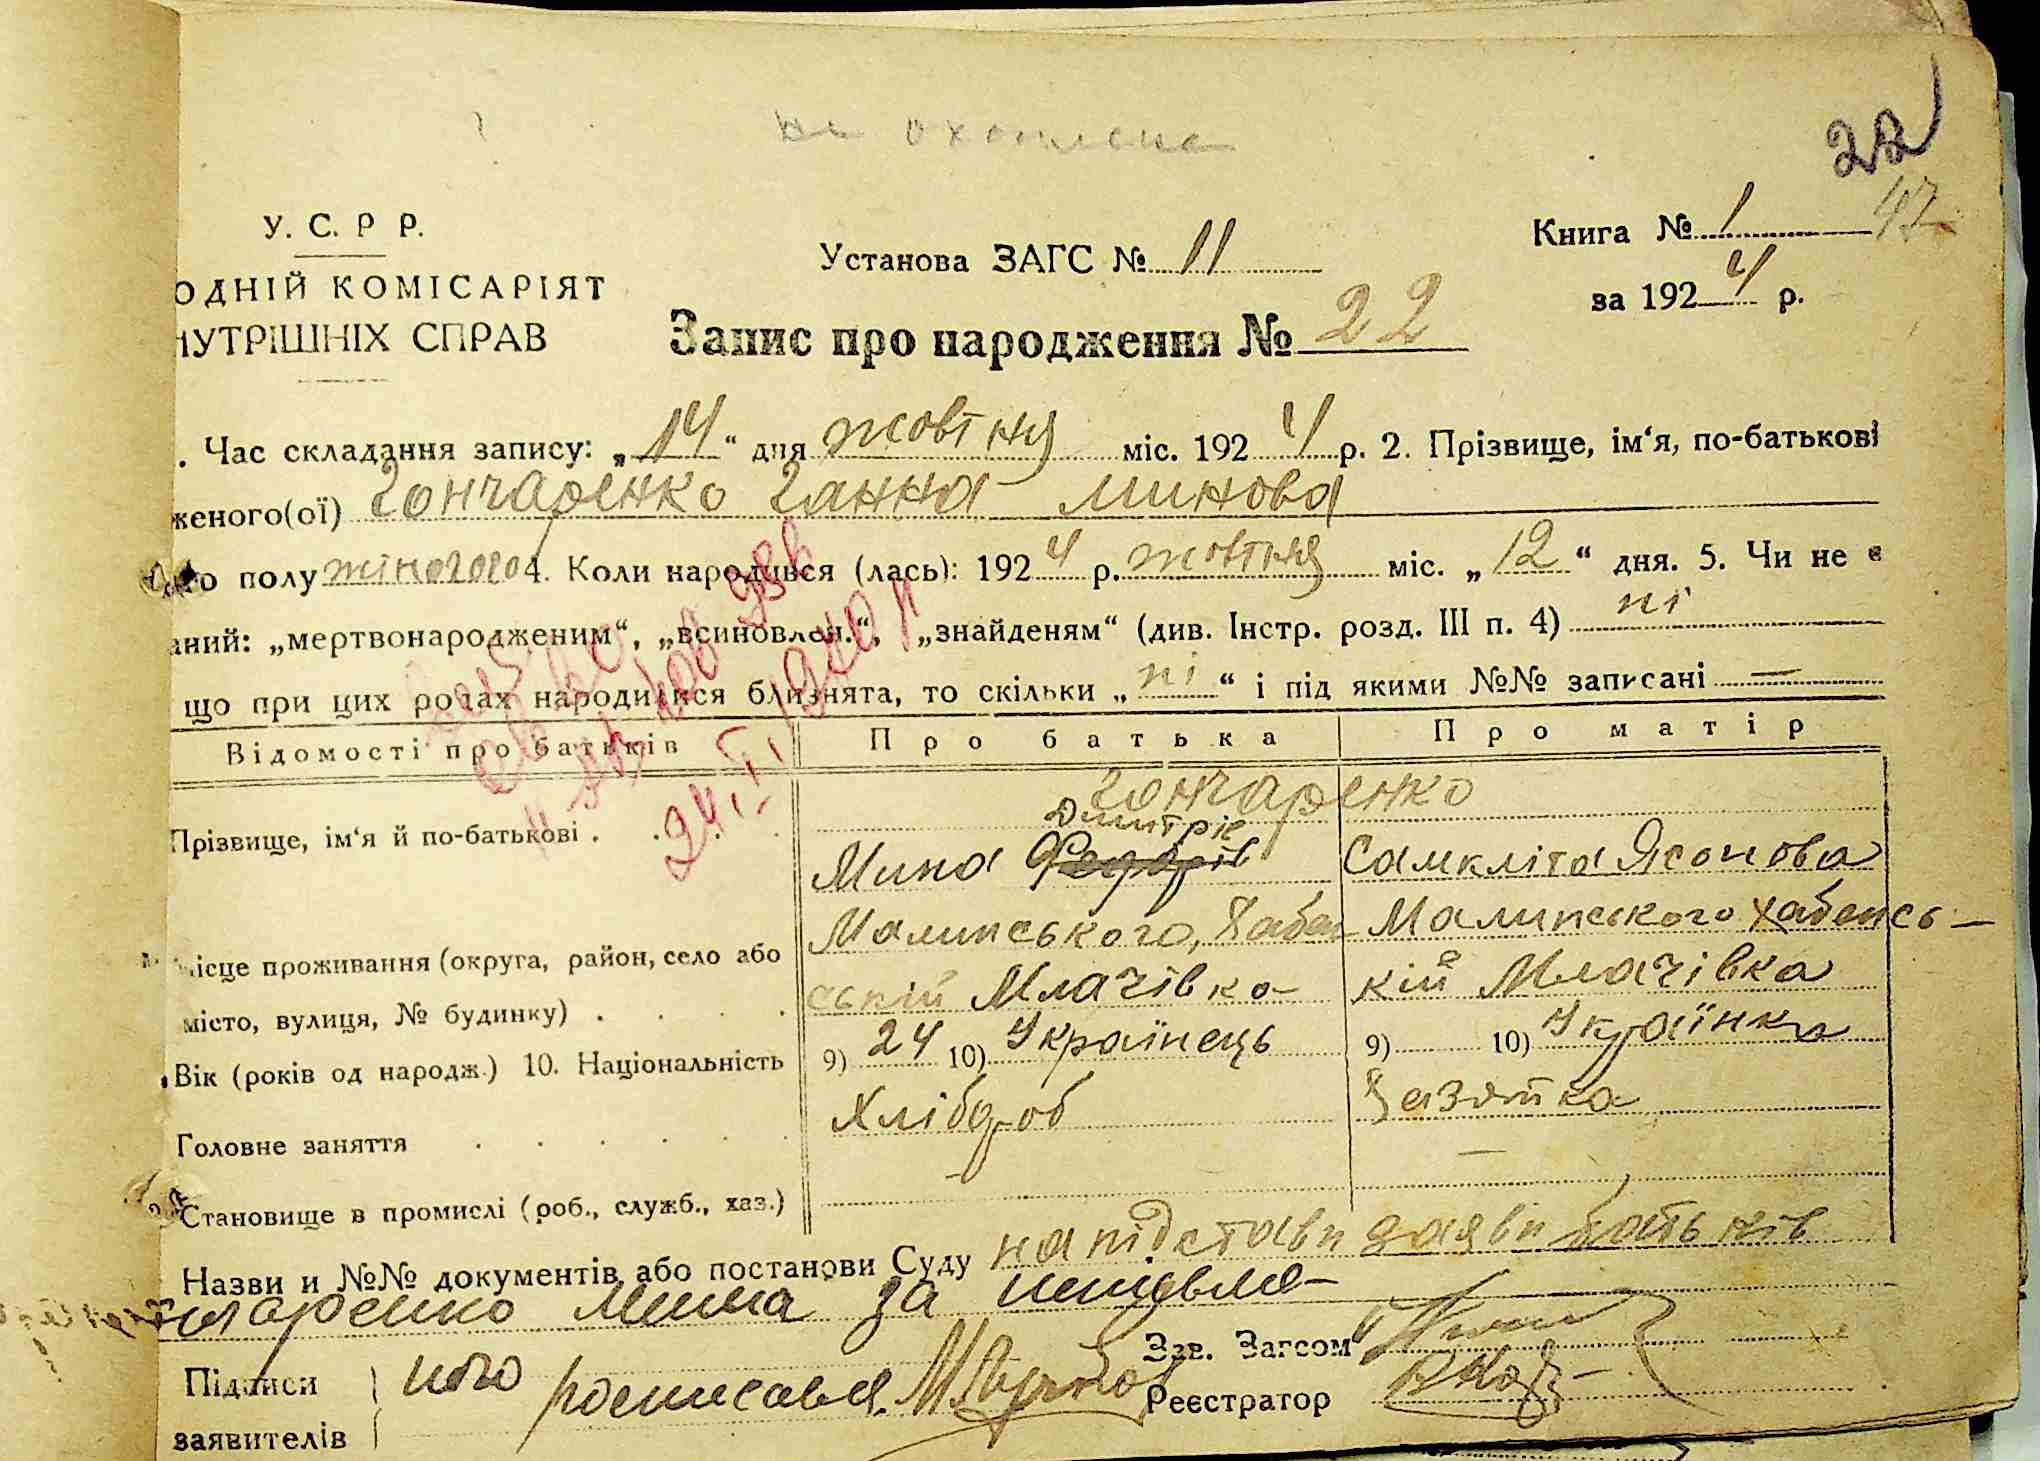 не охоплена
22
47
У. С. Р Р.
Установа ЗАГС № 11
Книга № 1
ОДНІЙ КОМІСАРІЯТ
за 1924 р.
НУТРІШНІХ СПРАВ
Запис про народження № 22
. Час складання запису: „14“ дня жовтня міс. 1924 р. 2. Прізвище, ім‘я, по-батькові
женого(ої) Гончаренко Ганна Минова
го полу жіночого 4. Коли народився (лась): 1924 р. жовтня міс. „12“ дня. 5. Чи не є
аний: „мертвонародженим“, „всиновлен.“, „знайденям“ (див. Інстр. розд. III п. 4) ні
що при цих родах народилися близнята, то скільки „ні“ і під якими №№ записані —
Відомості про батьків Про батька Про матір
Гончаренко
Дмитріє
Прізвище, ім‘я й по-батькові . Мина Федорів Самкліта Ясонова
Малинського, Хабен- Малинського хабенсь-
місце проживання (округа, район, село або ський Млачівка кій Млачівка
місто, вулиця, № будинку) .
Вік (років од народж.) 10. Національність 9) 24 10) Українець 9) 10) Українка
Головне заняття Хлібороб Хазяйка
Становище в промислі (роб., служб., хаз.) — —
Назви и №№ документів або постанови Суду на підставі заяви батьків
Гончаренко Мина за неписьмо-
Зав. Загсом
Підписи
заявителів
ного росписався
Реєстратор
24.II 1940 р